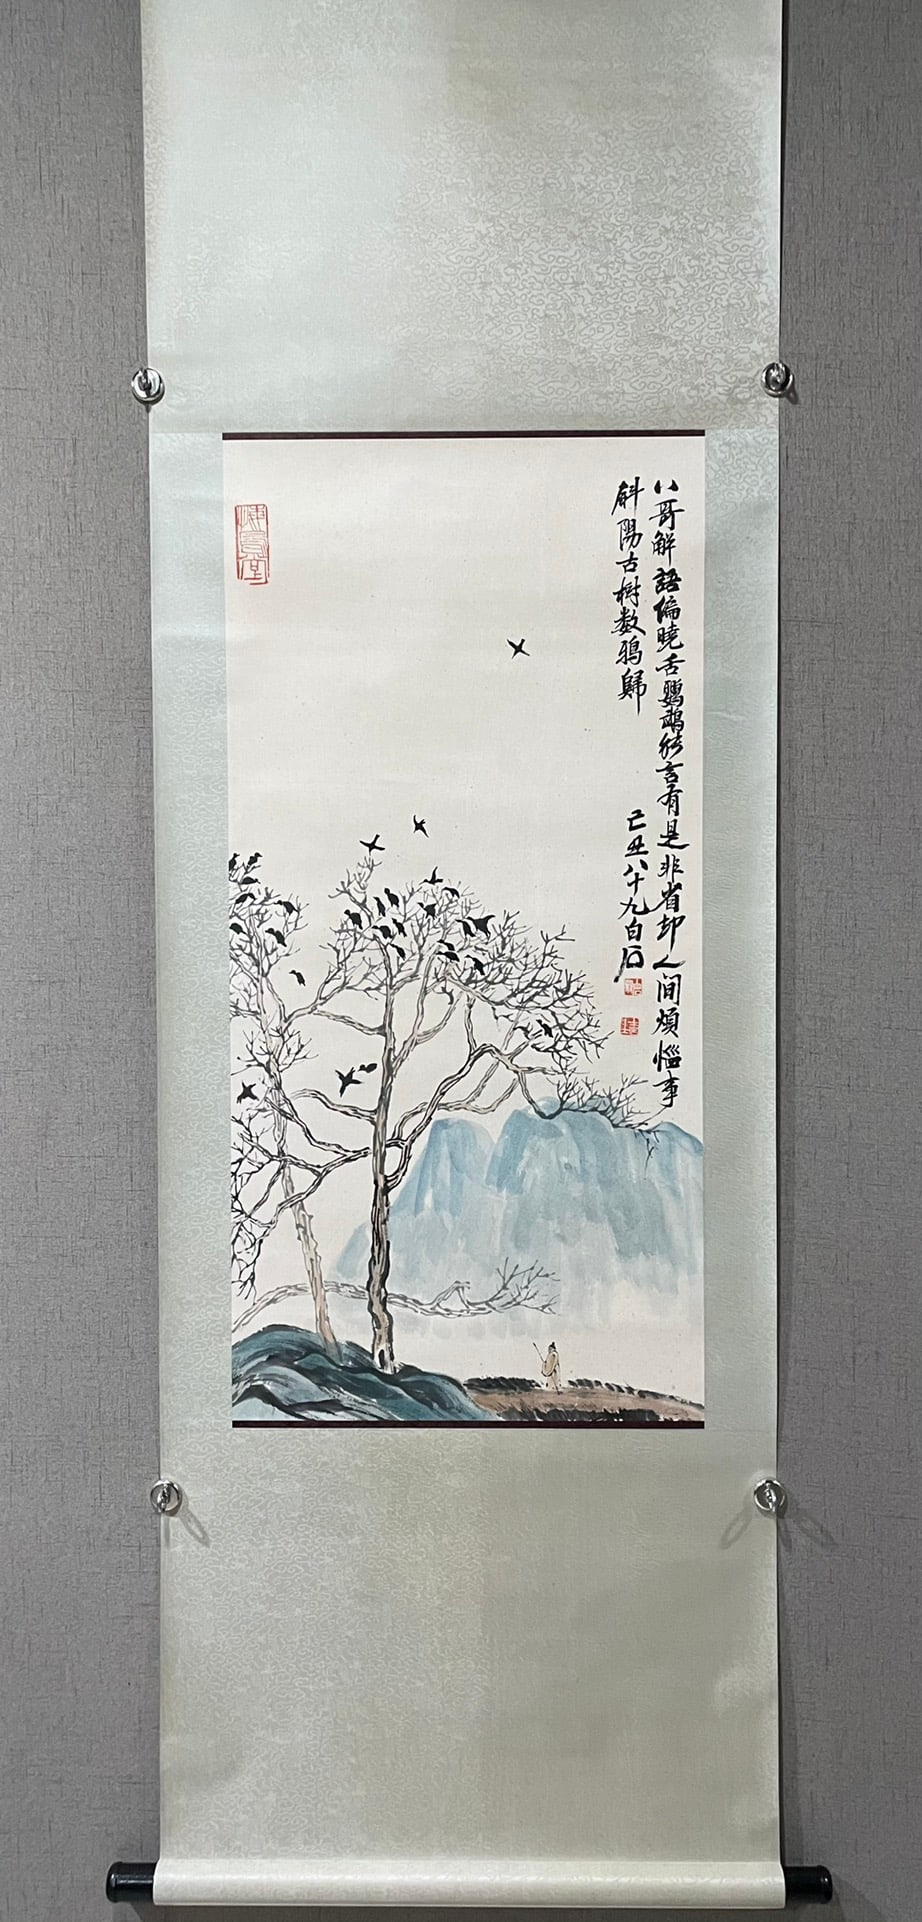 八哥解語偏曉舌鸚鵡能言有是非省却人间煩惱事
斜陽古樹数鴉歸
己丑八十九白石
悔烏堂